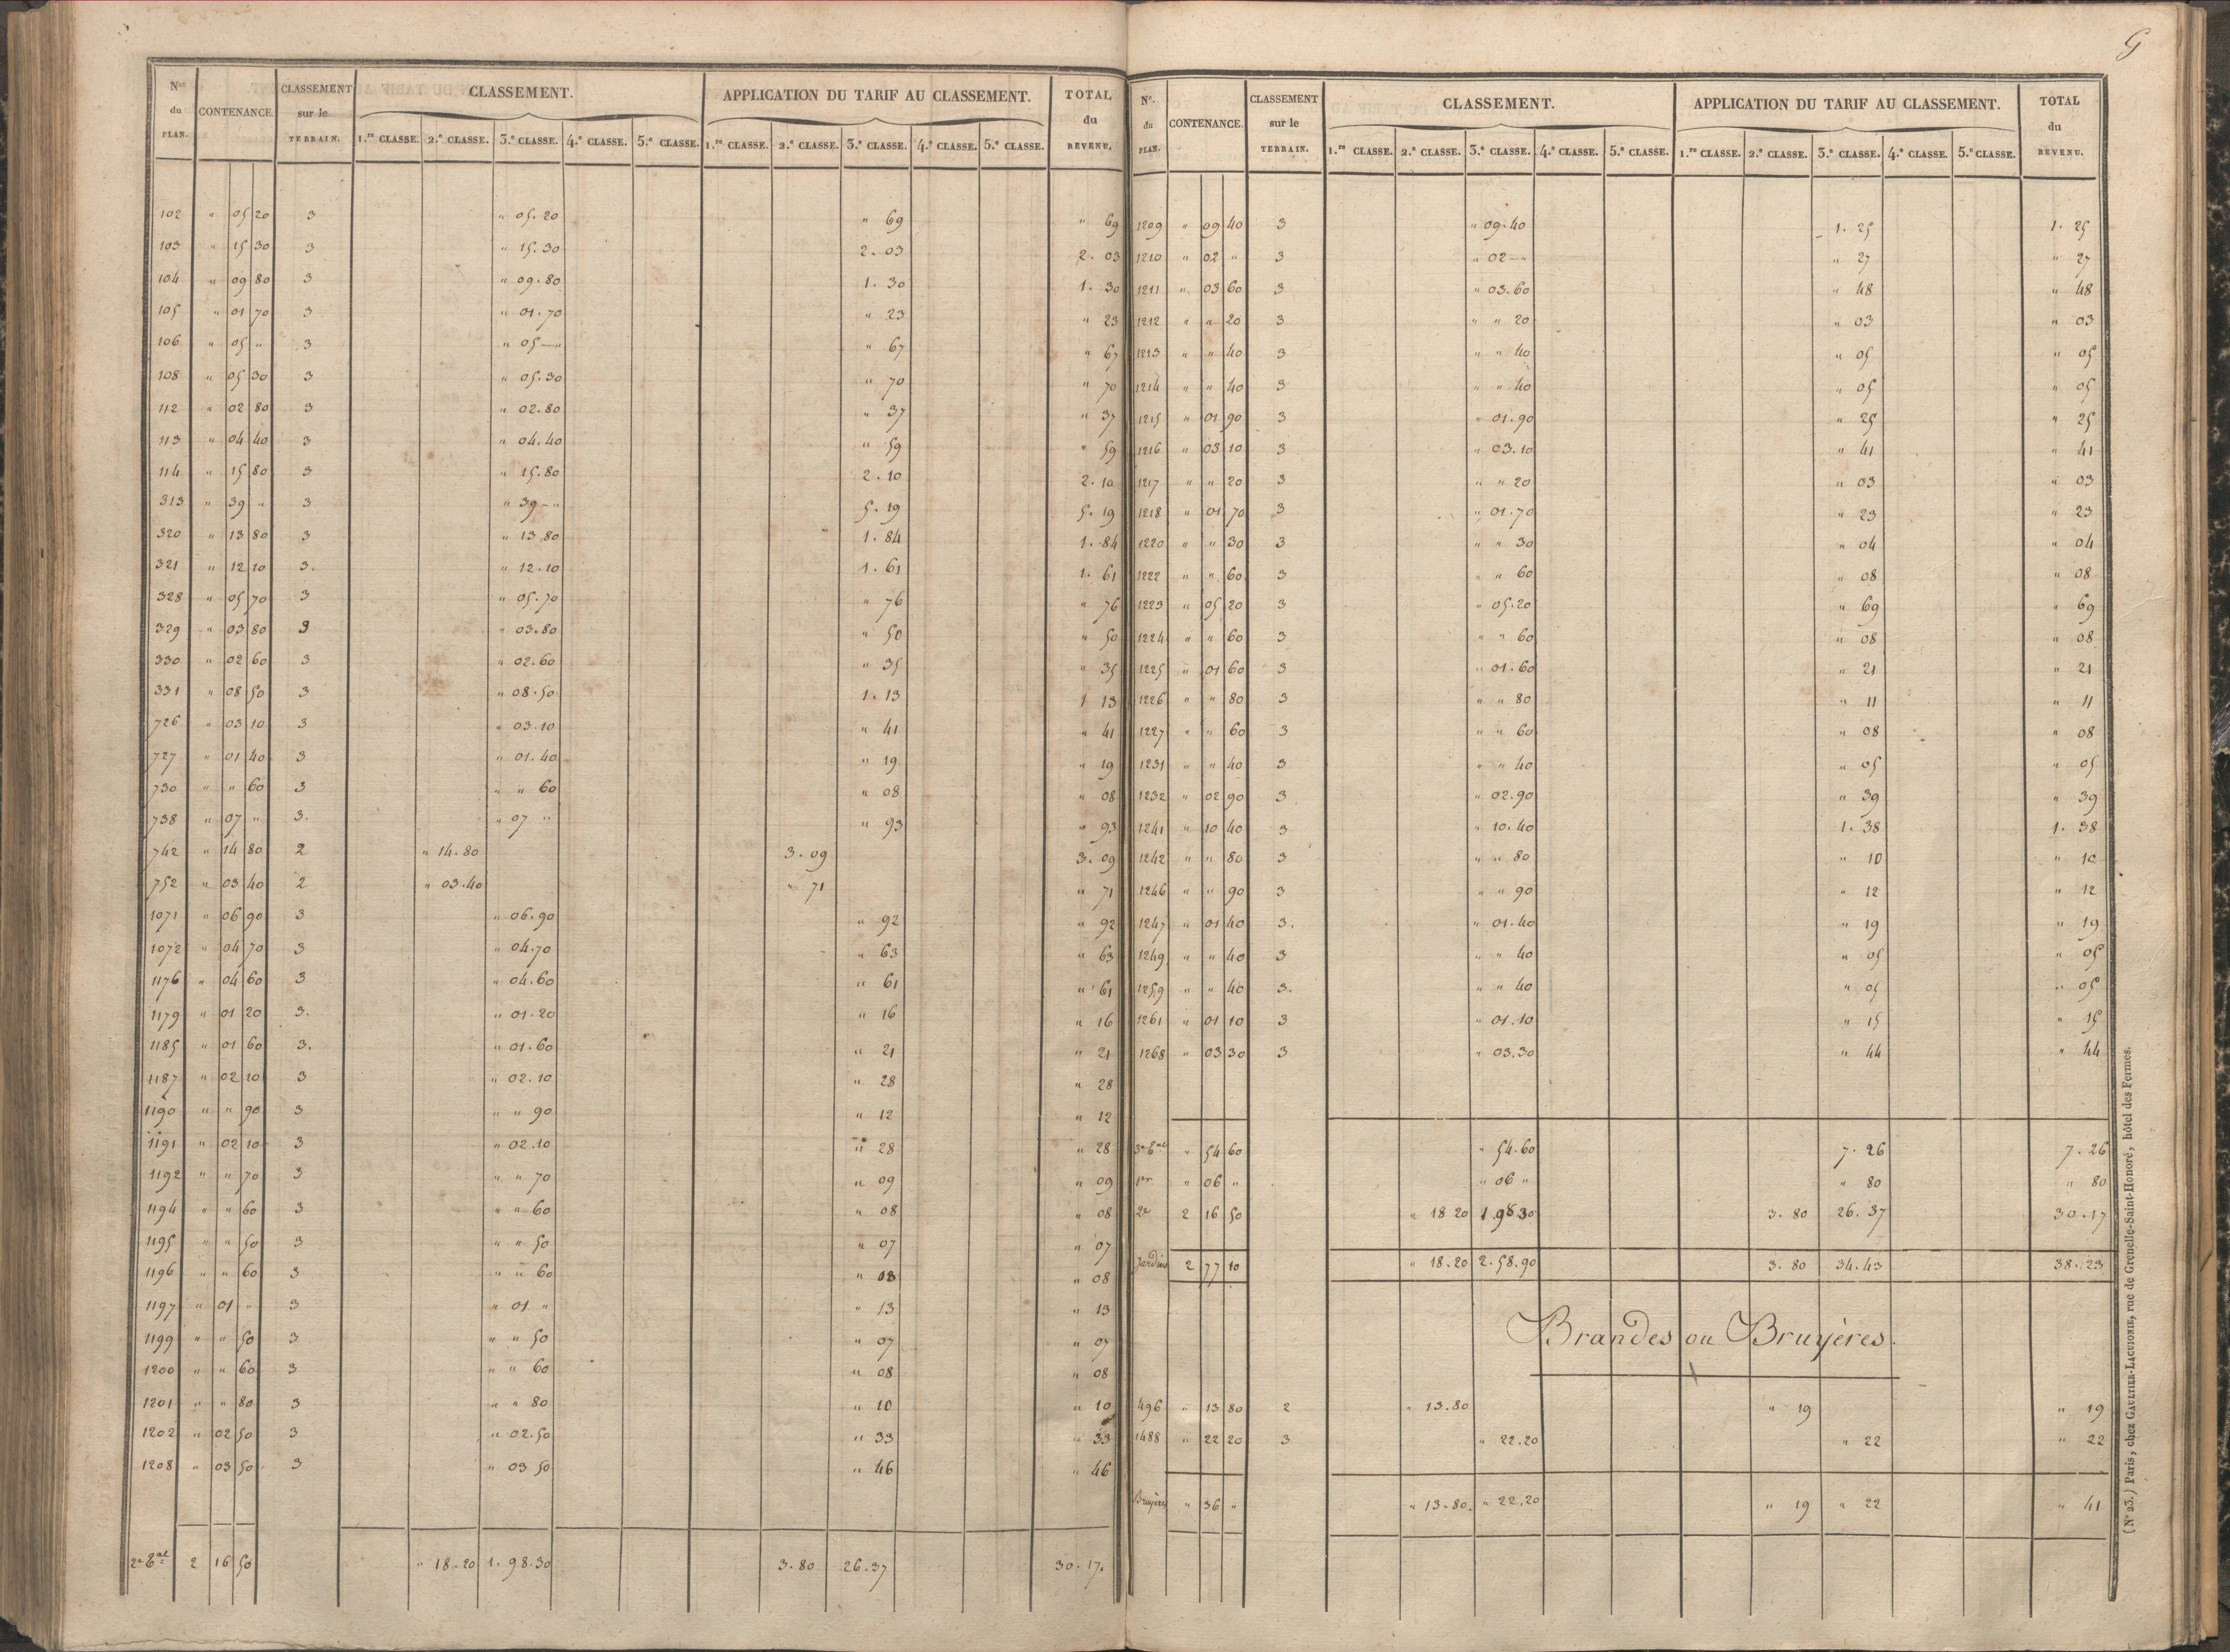 G
N.os du PLAN. CONTENANCE. CLASSEMENT sur le TERRAIN. CLASSEMENT. APPLICATION DU TARIF AU CLASSEMENT. TOTAL du REVENU.
1.re CLASSE. 2.e CLASSE. 3.e CLASSE. 4.e CLASSE. 5.e CLASSE. 1.re CLASSE. 2.e CLASSE. 3.e CLASSE. 4.e CLASSE. 5.e CLASSE.
102 " 05 20 3 " 05.20 " 69 " 69
103 " 15 30 3 " 15.30 2.03 2.03
104 " 09 80 3 " 09.80 1.30 1.30
105 " 01 70 3 " 01.70 " 23 " 23
106 " 05 " 3 " 05—" " 67 " 67
108 " 05 30 3 " 05.30 " 70 " 70
112 " 02 80 3 " 02.80 " 37 " 37
113 " 04 40 3 " 04.40 " 59 " 59
114 " 15 80 3 " 15.80 2.10 2.10
313 " 39 " 3 " 39—" 5.19 5.19
320 " 13 80 3 " 13.80 1.84 1.84
321 " 12 10 3. " 12.10 1.61 1.61
328 " 05 70 3 " 05.70 " 76 " 76
329 " 03 80 3 " 03.80 " 50 " 50
330 " 02 60 3 " 02.60 " 35 " 35
331 " 08 50 3 " 08.50 1.13 1 13
726 " 03 10 3 " 03.10 " 41 " 41
727 " 01 40 3 " 01.40 " 19 " 19
730 " " 60 3 " " 60 " 08 " 08
738 " 07 " 3. " 07 " " 93 " 93
742 " 14 80 2 " 14.80 3.09 3.09
752 " 03 40 2 " 03.40 " 71 " 71
1071 " 06 90 3 " 06.90 " 92 " 92
1072 " 04 70 3 " 04.70 " 63 " 63
1176 " 04 60 3 " 04.60 " 61 " 61
1179 " 01 20 3. " 01.20 " 16 " 16
1185 " 01 60 3. " 01.60 " 21 " 21
1187 " 02 10 3 " 02.10 " 28 " 28
1190 " " 90 3 " " 90 " 12 " 12
1191 " 02 10 3 " 02.10 " 28 " 28
1192 " " 70 3 " " 70 " 09 " 09
1194 " " 60 3 " " 60 " 08 " 08
1195 " " 50 3 " " 50 " 07 " 07
1196 " " 60 3 " " 60 " 08 " 08
1197 " 01 " 3 " 01 " " 13 " 13
1199 " " 50 3 " " 50 " 07 " 07
1200 " " 60 3 " " 60 " 08 " 08
1201 " " 80 3 " " 80 " 10 " 10
1202 " 02 50 3 " 02.50 " 33 " 33
1208 " 03 50 3 " 03 50 " 46 " 46
2e Eal 2 16 50 " 18.20 1.98.30 3.80 26.37 30.17.
N.o du PLAN. CONTENANCE. CLASSEMENT sur le TERRAIN. CLASSEMENT. APPLICATION DU TARIF AU CLASSEMENT. TOTAL du REVENU.
1.re CLASSE. 2.e CLASSE. 3.e CLASSE. 4.e CLASSE. 5.e CLASSE. 1.re CLASSE. 2.e CLASSE. 3.e CLASSE. 4.e CLASSE. 5.e CLASSE.
1209 " 09 40 3 " 09.40 1.25 1.25
1210 " 02 " 3 " 02—" " 27 " 27
1211 " 03 60 3 " 03.60 " 48 " 48
1212 " " 20 3 " " 20 " 03 " 03
1213 " " 40 3 " " 40 " 05 " 05
1214 " " 40 3 " " 40 " 05 " 05
1215 " 01 90 3 " 01.90 " 25 " 25
1216 " 03 10 3 " 03.10 " 41 " 41
1217 " " 20 3 " " 20 " 03 " 03
1218 " 01 70 3 " 01.70 " 23 " 23
1220 " " 30 3 " " 30 " 04 " 04
1222 " " 60 3 " " 60 " 08 " 08
1223 " 05 20 3 " 05.20 " 69 " 69
1224 " " 60 3 " " 60 " 08 " 08
1225 " 01 60 3 " 01.60 " 21 " 21
1226 " " 80 3 " " 80 " 11 " 11
1227 " " 60 3 " " 60 " 08 " 08
1231 " " 40 3 " " 40 " 05 " 05
1232 " 02 90 3 " 02.90 " 39 " 39
1241 " 10 40 3 " 10.40 1.38 1.38
1242 " " 80 3 " " 80 " 10 " 10
1246 " " 90 3 " " 90 " 12 " 12
1247 " 01 40 3. " 01.40 " 19 " 19
1249 " " 40 3 " " 40 " 05 " 05
1259 " " 40 3. " " 40 " 05 " 05
1261 " 01 10 3 " 01.10 " 15 " 15
1268 " 03 30 3 " 03.30 " 44 " 44
3e Eal " 54 60 " 54.60 7.26 7.26
1er " 06 " " 06 " " 80 " 80
2e 2 16 50 " 18 20 1.98 30 3.80 26.37 30.17
Jardins 2 77 10 " 18.20 2.58.90 3.80 34.43 38.23
Brandes ou Bruyères.
496 " 13 80 2 " 13.80 " 19 " 19
1488 " 22 20 3 " 22.20 " 22 " 22
Bruyères " 36 " " 13.80. " 22.20 " 19 " 22 " 41
(N.o 23.) Paris, chez GAULTIER-LAGUIONIE, rue de Grenelle-Saint-Honoré, hôtel des Fermes.